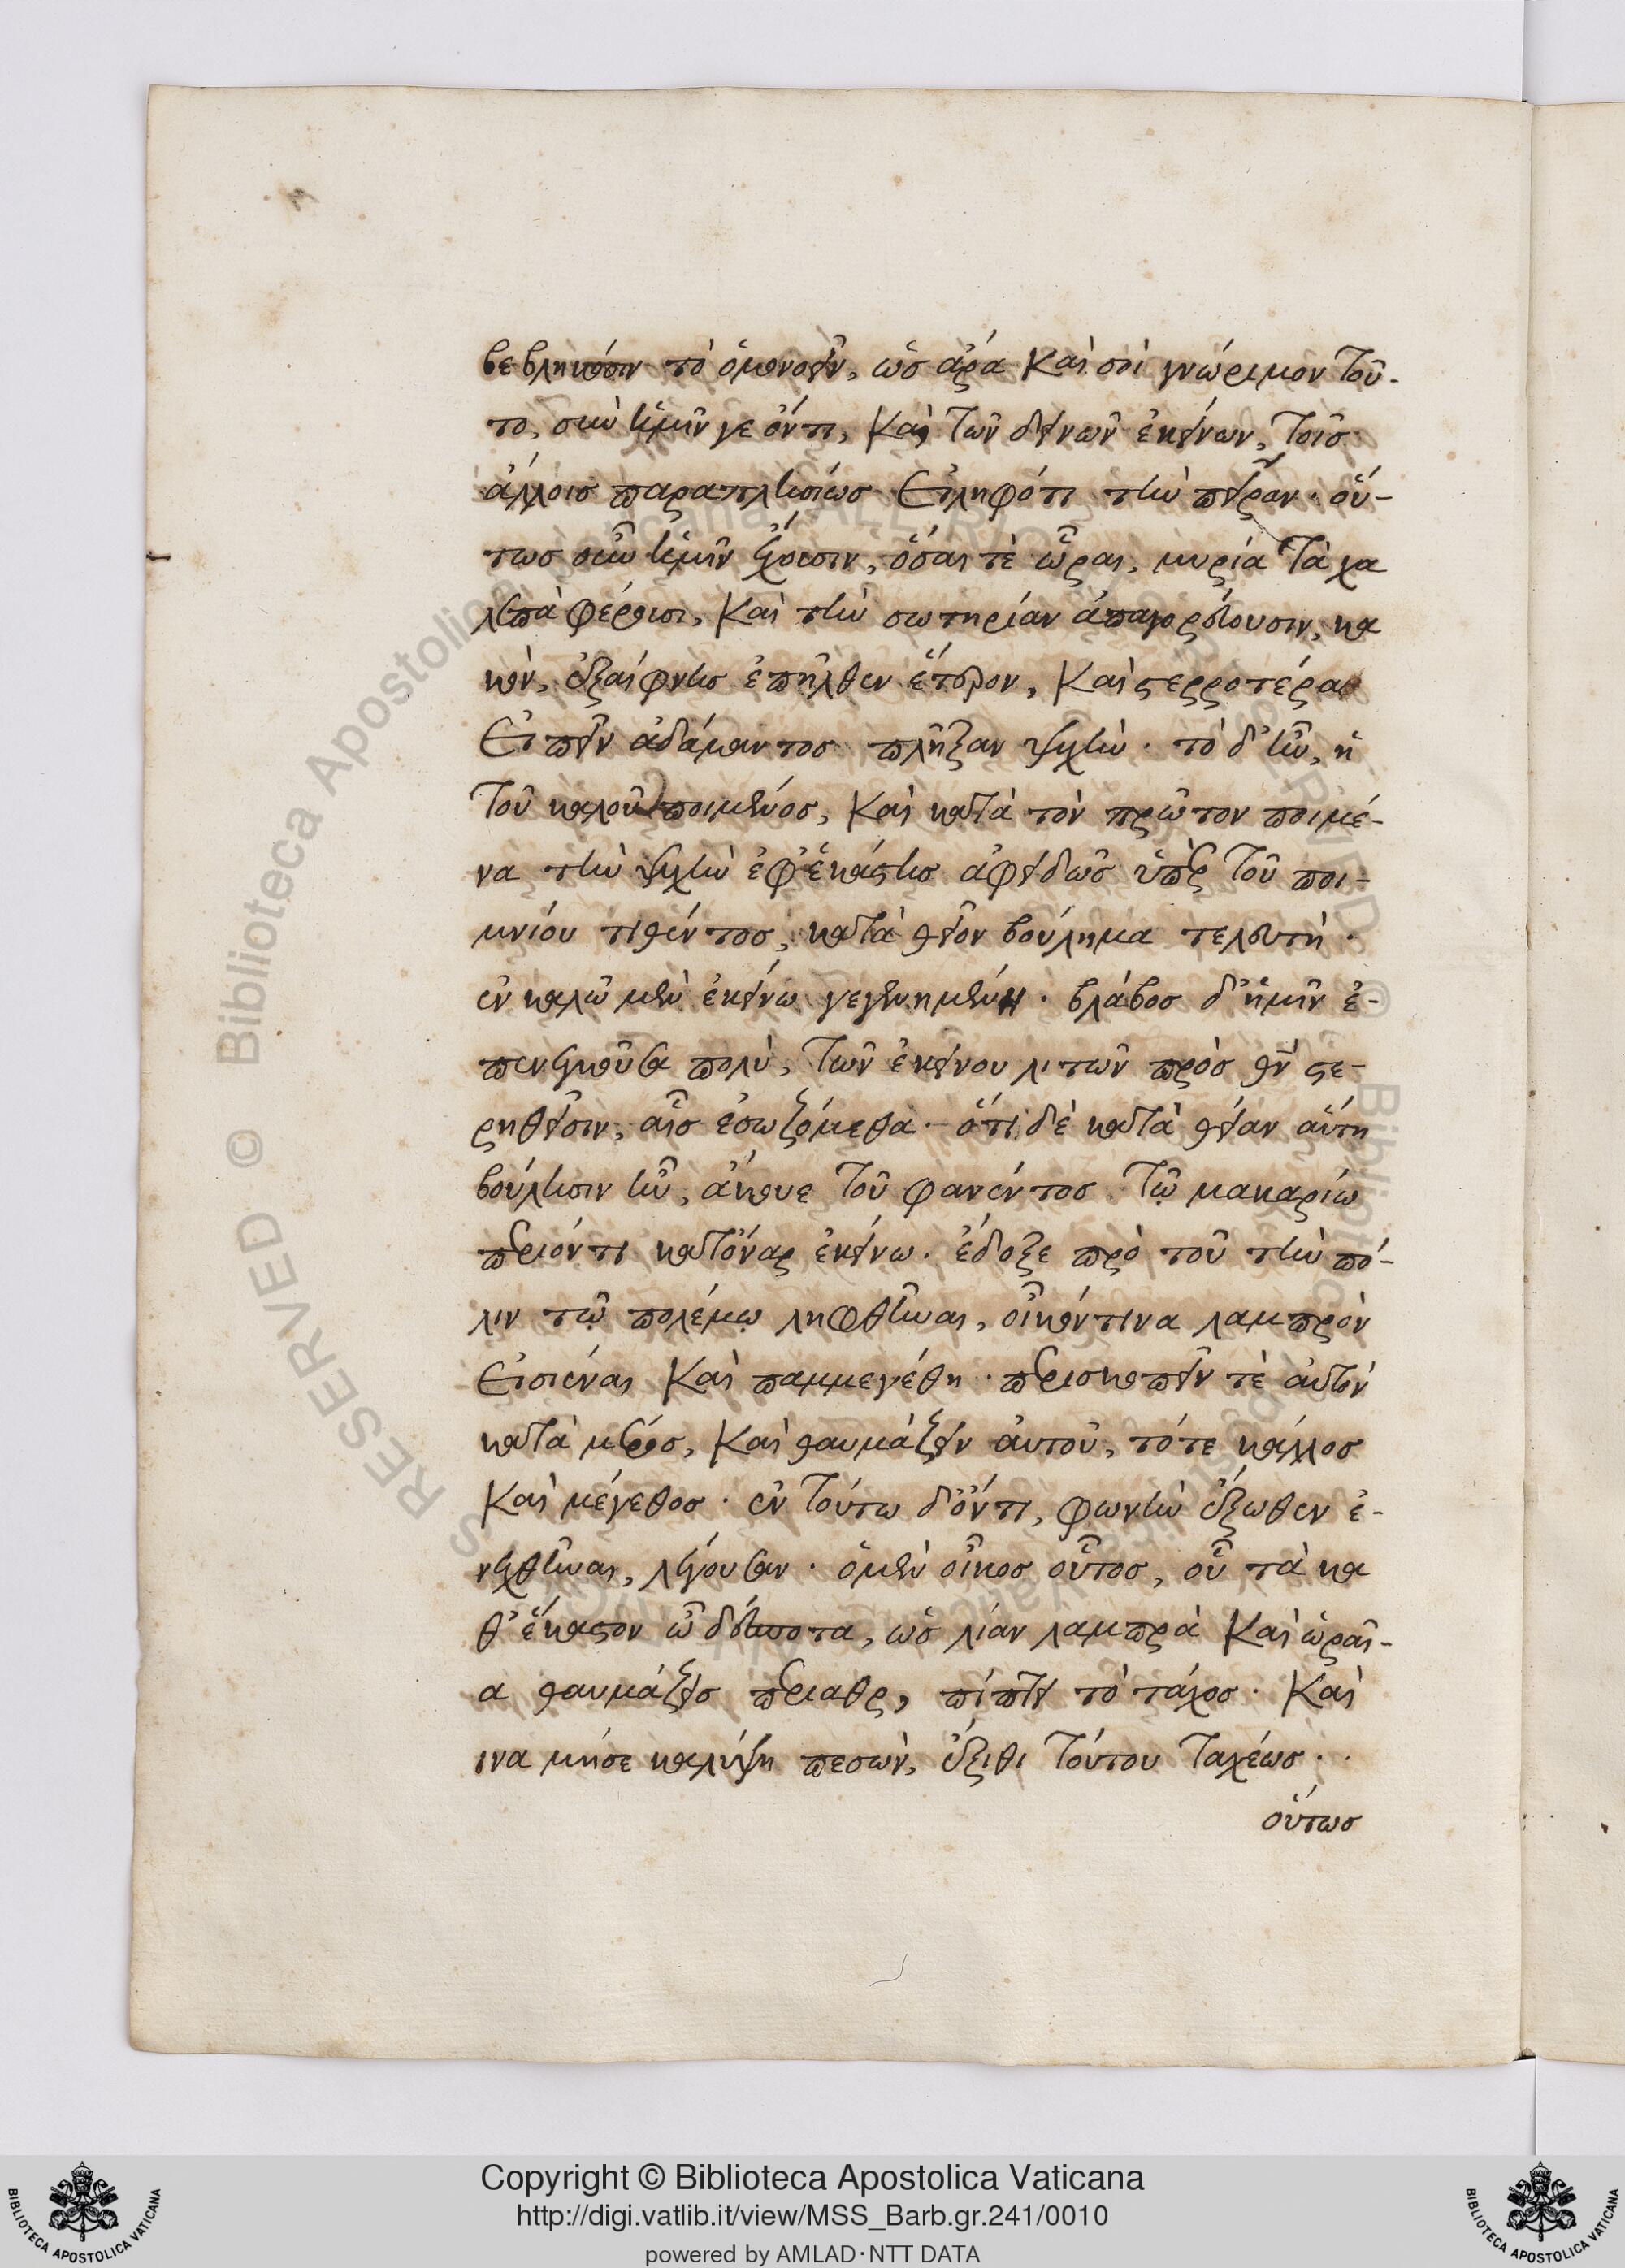 βεβληκόσιν τὸ ὁμονοεῖν, ὡς ἄρα καὶ σοὶ γνώριμον τοῦ-
το, σὺν ἡμῖν γε ὄντι, καὶ τῶν δεινῶν ἐκείνων, τοῖς
ἄλλοις παραπλησίως εἰληφότι τὴν πεῖραν. οὕ-
τως οὖν ἡμῖν ἔχουσιν, ὅσαι τὲ ὧραι, μυρία τὰ χα
λεπὰ φέρουσι, καὶ τὴν σωτηρίαν ἀπαγορεύουσιν, κα
κὸν, ἐξαίφνης ἐπῆλθεν ἕτερον, καὶ στερροτέραν
εἰπεῖν ἀδάμαντος πλῆξαν ψυχὴν. τὸ δ' ἦν, ἡ
τοῦ καλοῦ ποιμένος, καὶ κατὰ τὸν πρῶτον ποιμέ-
να τὴν ψυχὴν ἐφ' ἑκάστης ἀφειδῶς ὑπὲρ τοῦ ποι-
μνίου τιθέντος, κατὰ θεῖον βούλημα τελευτὴ.
ἐν καλῶ μὲν ἐκείνω γεγενημένη. βλάβος δ' ἡμῖν ἐ-
πενεγκοῦσα πολὺ, τῶν ἐκείνου λιτῶν πρὸς θν̄ στε-
ρηθεῖσιν, αἷς ἐσωζόμεθα. ὅτι δὲ κατὰ θείαν αὕτη
βούλησιν ἦν, ἄκουε τοῦ φανέντος τῷ μακαρίω
περιόντι κατ' ὄναρ ἐκείνω. ἔδοξε πρὸ τοῦ τὴν πό-
λιν τῷ πολέμῳ ληφθῆναι, οἶκόν τινα λαμπρὸν
εἰσιέναι καὶ παμμεγέθη. περισκοπεῖν τὲ αὐτὸν
κατὰ μέρος, καὶ θαυμάζειν αὐτοῦ, τότε κάλλος
καὶ μέγεθος. ἐν τούτω δ' ὄντι, φωνὴν ἔξωθεν ἐ-
νεχθῆναι, λέγουσαν. ὁ μὲν οἶκος οὗτος, οὗ τὰ κα
θ' ἕκαστον ὦ δέσποτα, ὡς λίαν λαμπρὰ καὶ ὡραῖ-
α θαυμάζεις περιαθρ, πίπτει τὸ τάχος. καὶ
ινα μήσε καλύψη πεσὼν, ἔξιθι τούτου ταχέως.
οὕτως
Copyright © Biblioteca Apostolica Vaticana
http://digi.vatlib.it/view/MSS_Barb.gr.241/0010
powered by AMLAD·NTT DATA